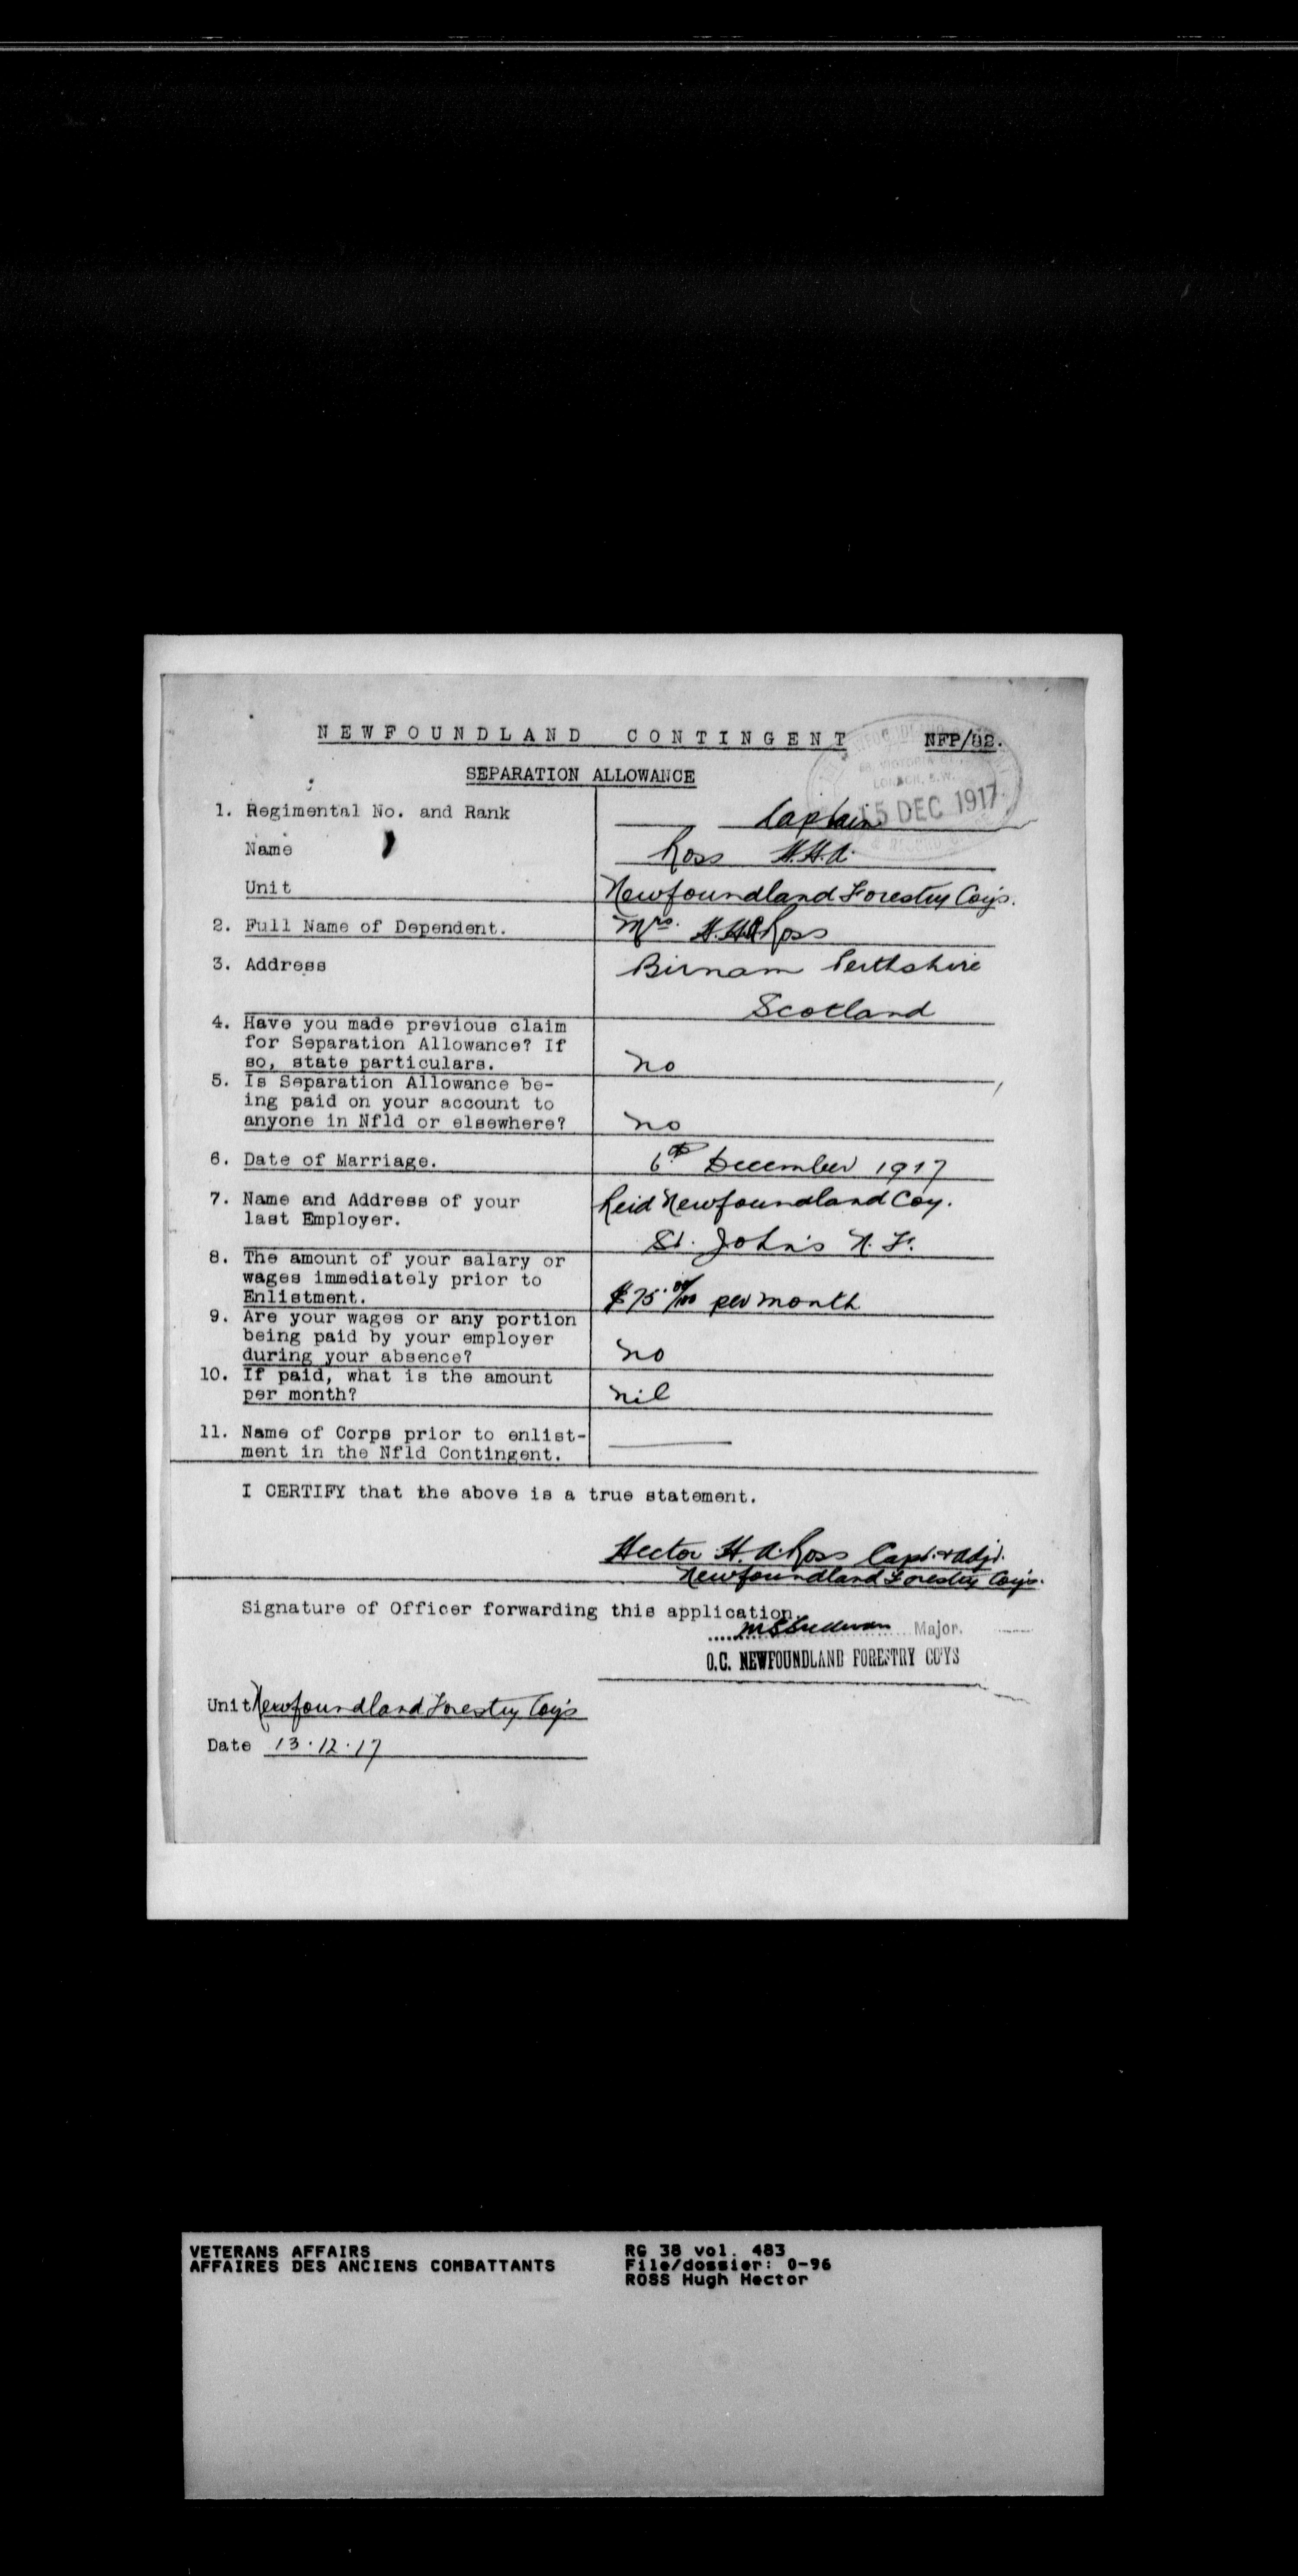 NEWFOUNDLAND CONTINGENT NFP/82.
SEPARATION ALLOWANCE
LONDON, S.W.
15 DEC 1917
1. Regimental No. and Rank Captain
Name Ross H.H.A.
Unit Newfoundland Forestry Coy's.
2. Full Name of Dependent. Mrs. H.H.A Ross
3. Address Birnam Perthshire
Scotland
4. Have you made previous claim
for Separation Allowance? If
so, state particulars. no
5. Is Separation Allowance be-
ing paid on your account to
anyone in Nfld or elsewhere? no
6. Date of Marriage. 6th December 1917
7. Name and Address of your Reid Newfoundland Coy.
last Employer.
St. John's N.F.
8. The amount of your salary or
wages immediately prior to
Enlistment. $75.00/100 per month
9. Are your wages or any portion
being paid by your employer
during your absence? no
10. If paid, what is the amount
per month? nil
11. Name of Corps prior to enlist-
ment in the Nfld Contingent.
I CERTIFY that the above is a true statement.
Hector H.A. Ross Capt. & Adjt.
Newfoundland Forestry Coy's.
Signature of Officer forwarding this application.
Major.
O.C. NEWFOUNDLAND FORESTRY COYS
Unit Newfoundland Forestry Coy's
Date 13.12.17
VETERANS AFFAIRS RG 38 vol. 483
AFFAIRES DES ANCIENS COMBATTANTS File/dossier: 0-96
ROSS Hugh Hector